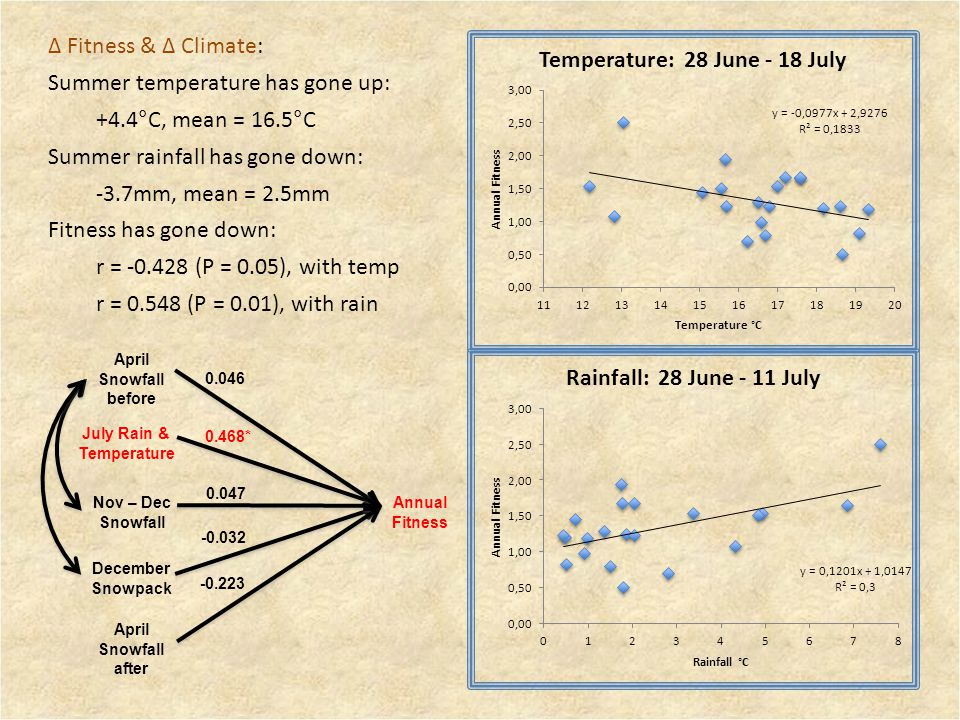 Δ Fitness & Δ Climate:
Summer temperature has gone up:
+4.4°C, mean = 16.5°C
Summer rainfall has gone down:
-3.7mm, mean = 2.5mm
Fitness has gone down:
r = -0.428 (P = 0.05), with temp
r = 0.548 (P = 0.01), with rain
April
Snowfall
before
July Rain &
Temperature
Nov – Dec
Snowfall
December
Snowpack
April
Snowfall
after
0.046
0.468*
0.047
-0.032
-0.223
Annual
Fitness
Temperature: 28 June - 18 July
y = -0,0977x + 2,9276
R² = 0,1833
Annual Fitness
3,00
2,50
2,00
1,50
1,00
0,50
0,00
11 12 13 14 15 16 17 18 19 20
Temperature °C
Rainfall: 28 June - 11 July
Annual Fitness
3,00
2,50
2,00
1,50
1,00
0,50
0,00
y = 0,1201x + 1,0147
R² = 0,3
0 1 2 3 4 5 6 7 8
Rainfall °C